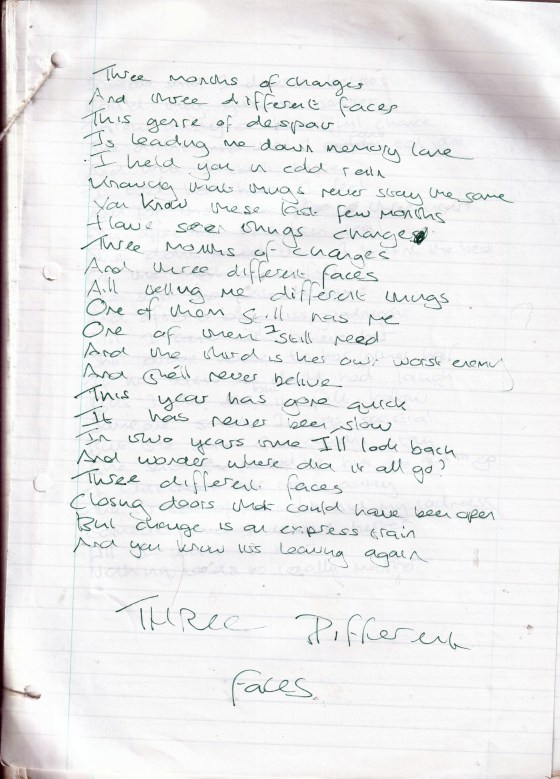 Three months of changes
And three different faces
This genre of despair
Is leading me down memory lane
I held you in cold rain
Knowing that things never stay the same
You know these last few months
I have seen things changes
Three months of changes
And three different faces
All telling me different things
One of them still has me
One of them I still need
And the third is her own worst enemy
And she'll never belive
This year has gone quick
It has never been slow
In two years time I'll look back
And wonder where did it all go?
Three different faces
Closing doors that could have been open
But change is an express train
And you know its leaving again
THREE Different
Faces